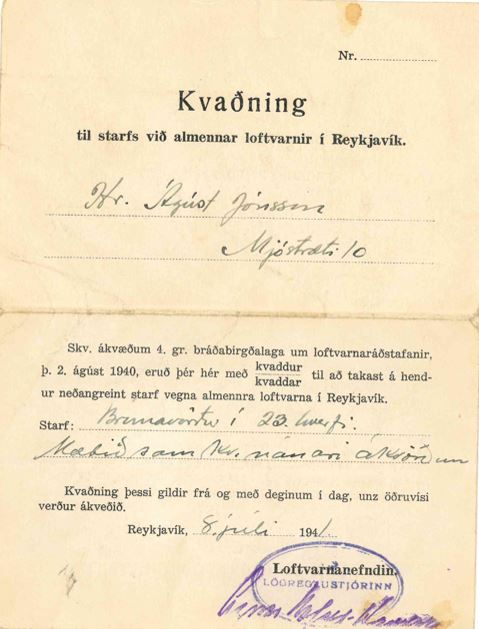 Nr.
Kvaðning
til starfs við almennar loftvarnir í Reykjavík.
Hr. Ágúst Jónsson
Mjóstræti 10
Skv. ákvæðum 4. gr. bráðabirgðalaga um loftvarnaráðstafanir,
þ. 2. ágúst 1940, eruð þér hér með kvaddur
kvaddar til að takast á hend-
ur neðangreint starf vegna almennra loftvarna í Reykjavík.
Starf: Brunavörður í 23. hverfi.
Mætið sam kv. nánari ákvörðun
Kvaðning þessi gildir frá og með deginum í dag, unz öðruvísi
verður ákveðið.
Reykjavík, 8. júlí 1941.
Loftvarnanefndin.
LÖGREGLUSTJÓRINN